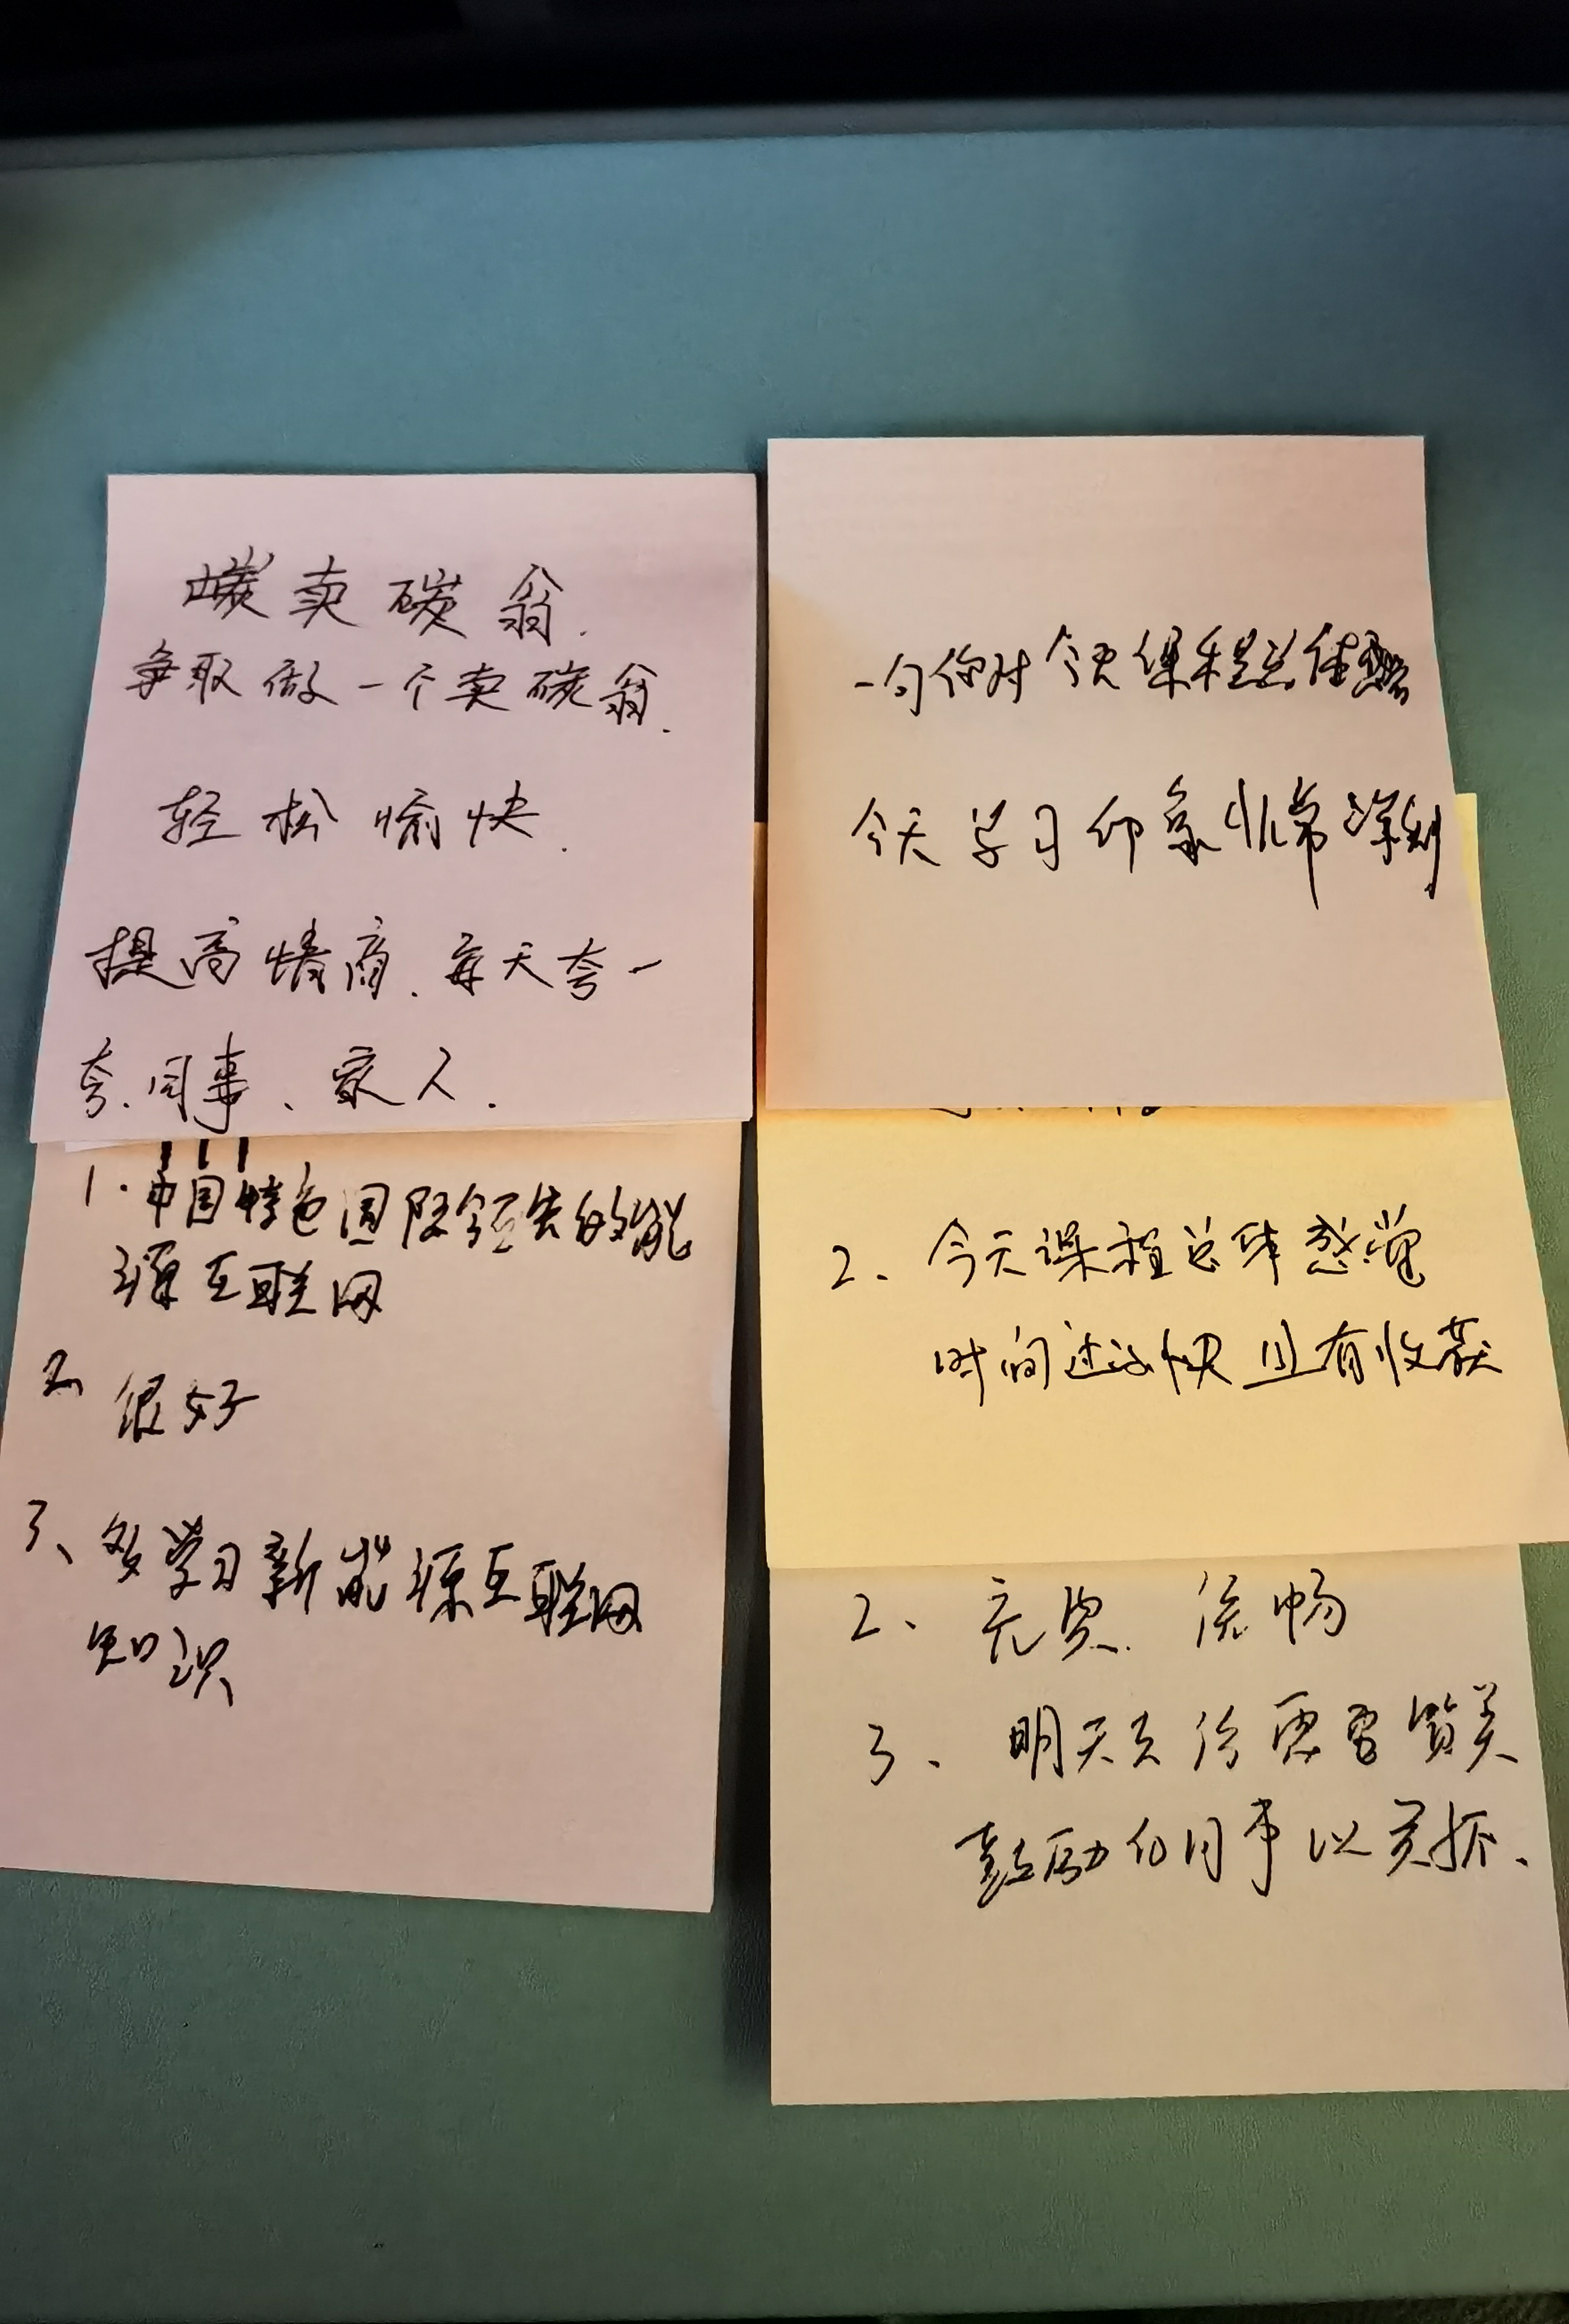 卖碳翁.
争取做一个卖碳翁.
轻松愉快.
提高情商.每天夸一
夸.同事、家人.
1.中国特色国际领先的能
源互联网
2、很好
3、多学习新能源互联网
知识
一句你对今天课程总体
今天学习印象非常深刻
2、今天课程总体感觉
时间过得快且有收获
2、充实.流畅
3、明天去给需要赞美
鼓励的同事以